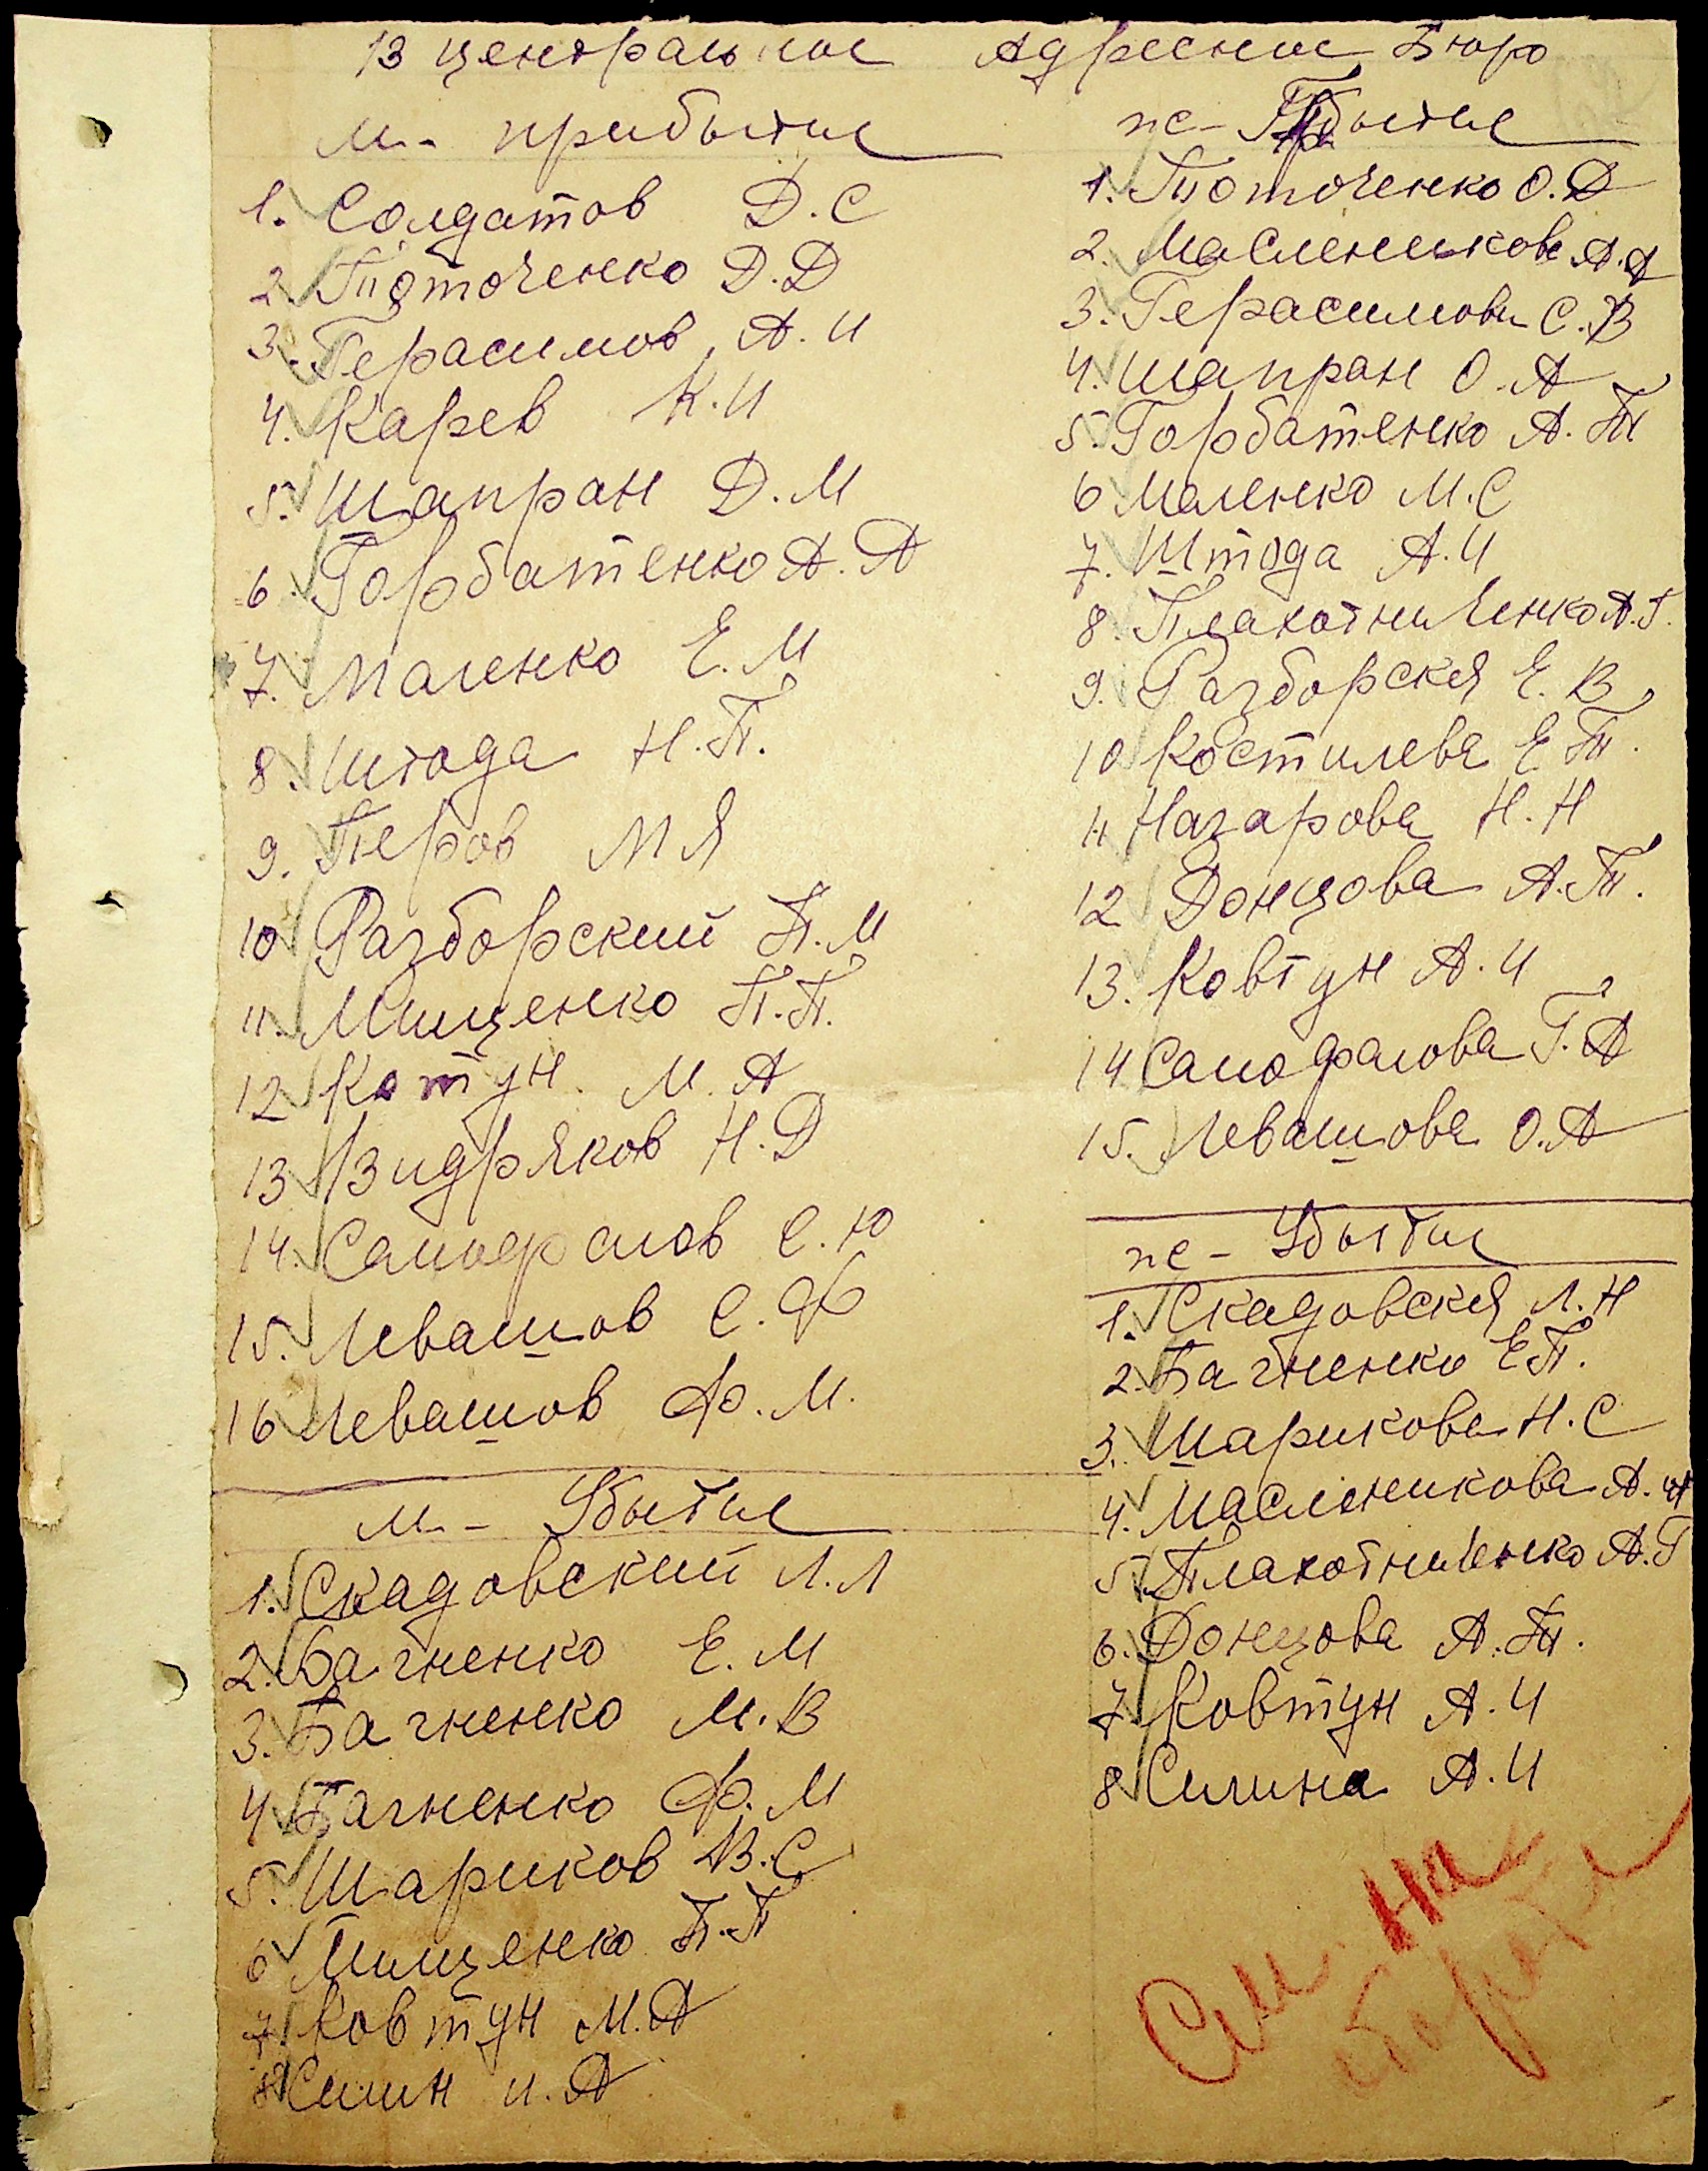 В центральное Адресное Бюро
м - прибытие
1. Солдатов Д.С
2. Поточенко Д.Д
3. Герасимов А.И
4. Карев К.И
5. Шапран Д.М
6. Горбатенко А.А
7. Маленко Е.М
8. Штода Н.П.
9. Перов М Я
10 Разборский П.М
11. Мищенко П.П.
12 Котун М.А
13 Видряков Н.Д
14. Самофалов С.Ю
15. Левашов С.Ф
16 Левашов Ф.М.
м - Убытие
1. Скадовский Л.Л
2. Багненко Е.М
3. Багненко М.В
4 Багненко Ф.М
5. Шариков В.С
6 Мищенко П.П
7. Ковтун М.А
8 Силин И.А
же - Прбытие
1. Поточенко О.Д
2. Масленикова А.А
3. Герасимова С.В
4. Шапран О.А
5. Горбатенко А.П
6 Маленко М.С
7. Штода А.И
8. Плахотниченко А.Г.
9. Разборская Е.В
10 Костилева Е.П.
11 Назарова Н.Н
12 Донцова А.П.
13. Ковтун А.И
14 Самофалова Г.А
15. Левашова О.А
же - Убытие
1. Скадовская Л.Н
2. Багненко Е.П.
3. Шарикова Н.С
4. Масленикова А.
5 Плахотниченко А.Г
6. Донцова А.П.
7. Ковтун А.И
8 Силина А.И
См. на
обороте